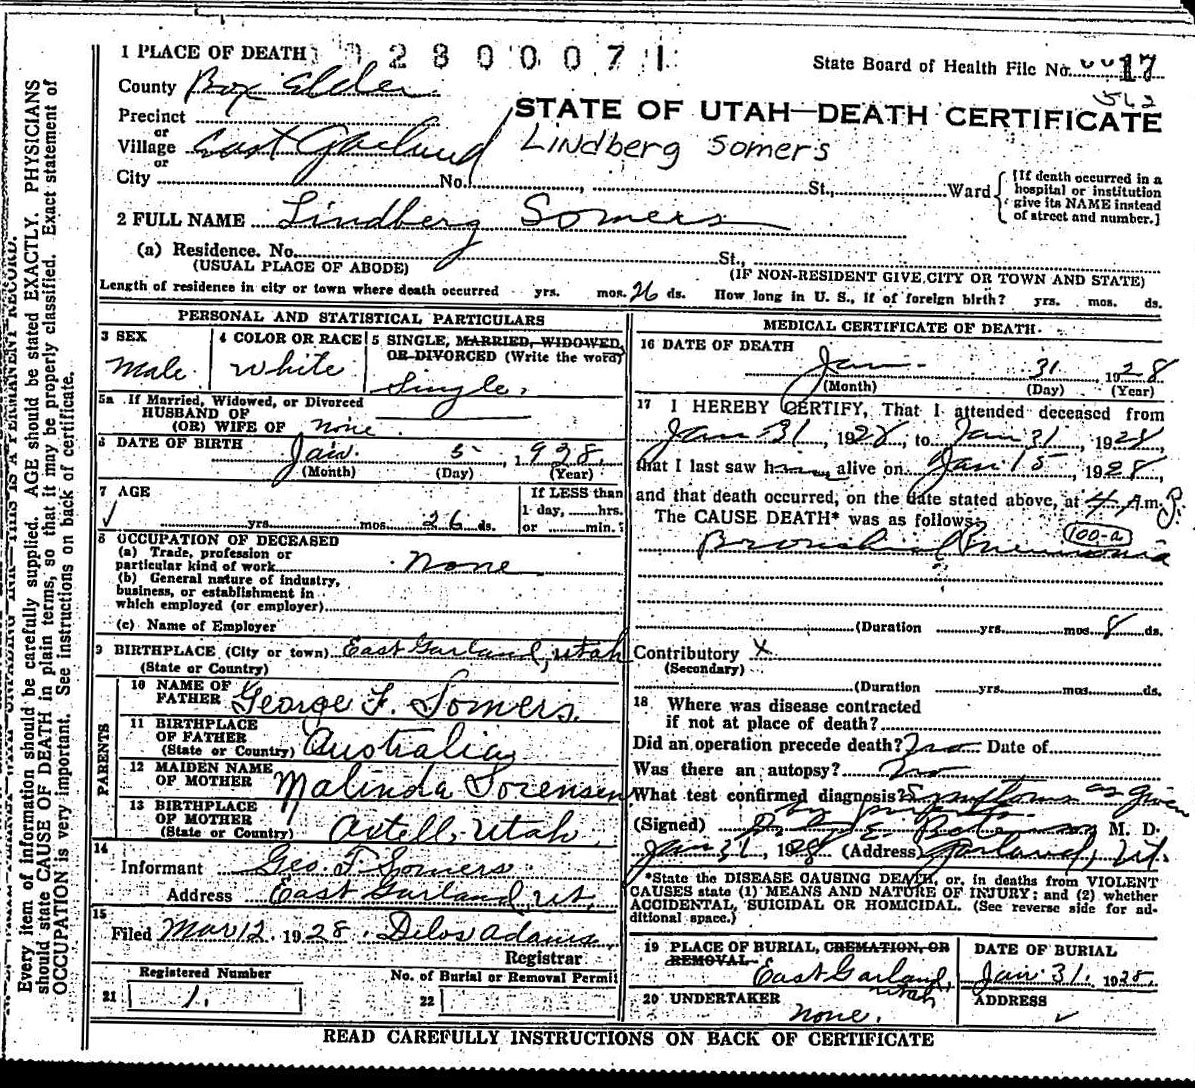 1 PLACE OF DEATH 9 2 8 0 0 0 7 1
State Board of Health File No. 0017
542
County Box Elder
STATE OF UTAH—DEATH CERTIFICATE
Precinct
or
Village East Garland
Lindberg Somers
or
City No. St., Ward
[If death occurred in a
hospital or institution
give its NAME instead
of street and number.]
2 FULL NAME Lindberg Somers
(a) Residence. No. St.,
(USUAL PLACE OF ABODE) (IF NON-RESIDENT GIVE CITY OR TOWN AND STATE)
Length of residence in city or town where death occurred yrs. mos. 26 ds. How long in U. S., if of foreign birth? yrs. mos. ds.
PERSONAL AND STATISTICAL PARTICULARS
3 SEX
Male
4 COLOR OR RACE
White
5 SINGLE, MARRIED, WIDOWED,
OR DIVORCED (Write the word)
Single.
5a If Married, Widowed, or Divorced
HUSBAND OF
(OR) WIFE OF none.
6 DATE OF BIRTH Jan. 5, 1928.
(Month) (Day) (Year)
7 AGE
yrs. mos. 26 ds.
If LESS than
1 day, hrs.
or min.
8 OCCUPATION OF DECEASED
(a) Trade, profession or
particular kind of work none
(b) General nature of industry,
business, or establishment in
which employed (or employer)
(c) Name of Employer
9 BIRTHPLACE (City or town) East Garland, Utah
(State or Country)
PARENTS
10 NAME OF
FATHER George F. Somers.
11 BIRTHPLACE
OF FATHER
(State or Country) Australia
12 MAIDEN NAME
OF MOTHER Malinda Sorensen
13 BIRTHPLACE
OF MOTHER
(State or Country) Axtell, Utah
14
Informant Geo. F. Somers
Address East Garland, Ut.
15
Filed Mar 12, 1928. Delos Adams,
Registrar
Registered Number
21 1.
No. of Burial or Removal Permit
22
MEDICAL CERTIFICATE OF DEATH
16 DATE OF DEATH
Jan. 31 1928
(Month) (Day) (Year)
17 I HEREBY CERTIFY, That I attended deceased from
Jan 31, 1928, to Jan 31, 1928,
that I last saw him alive on Jan 15, 1928,
and that death occurred, on the date stated above, at 4 A.m.
The CAUSE DEATH* was as follows:
100-a
Bronchial Pneumonia
(Duration yrs. mos. 8 ds.
Contributory X
(Secondary)
(Duration yrs. mos. ds.
18 Where was disease contracted
if not at place of death?
Did an operation precede death? No Date of
Was there an autopsy? No
What test confirmed diagnosis? Symptoms as given
by
(Signed) M. D.
Jan 31, 1928 (Address) Garland, Ut.
*State the DISEASE CAUSING DEATH, or, in deaths from VIOLENT
CAUSES state (1) MEANS AND NATURE OF INJURY; and (2) whether
ACCIDENTAL, SUICIDAL OR HOMICIDAL. (See reverse side for ad-
ditional space.)
19 PLACE OF BURIAL, CREMATION, OR
REMOVAL
East Garland,
Utah
DATE OF BURIAL
Jan. 31. 1928.
20 UNDERTAKER
none.
ADDRESS
READ CAREFULLY INSTRUCTIONS ON BACK OF CERTIFICATE
Every item of information should be carefully supplied. AGE should be stated EXACTLY. PHYSICIANS
should state CAUSE OF DEATH in plain terms, so that it may be properly classified. Exact statement of
OCCUPATION is very important. See instructions on back of certificate.